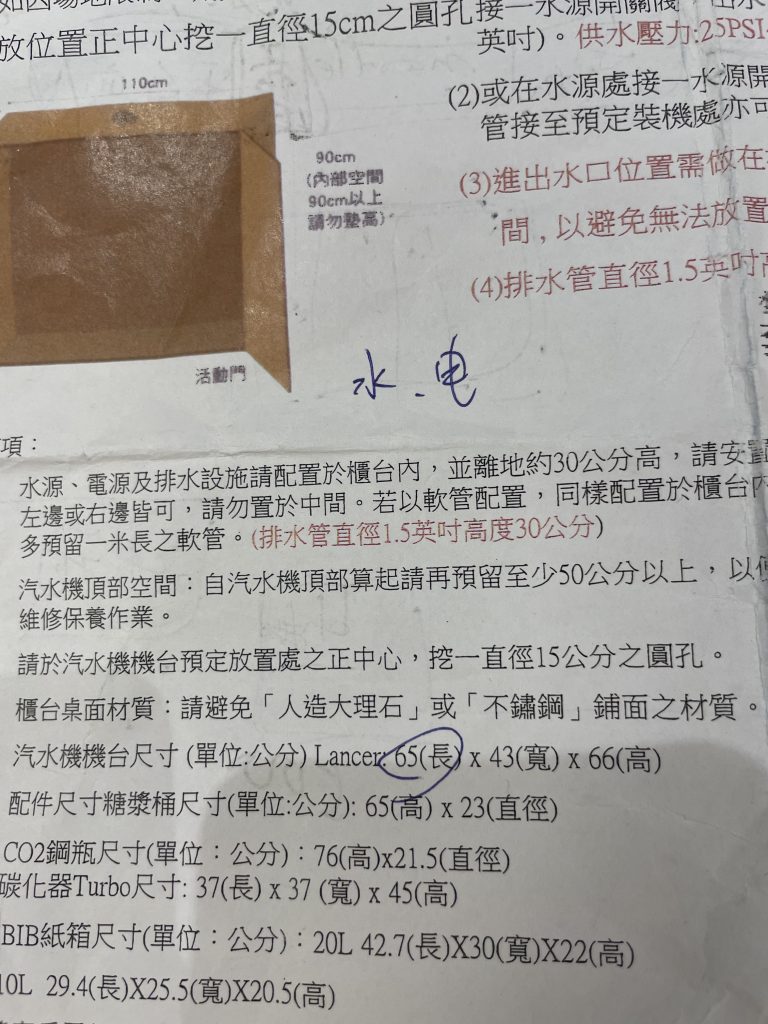 放位置正中心挖一直徑15cm之圓孔
110cm
90cm
(內部空間
90cm以上
請勿墊高)
活動門
接一水源開關
英吋)。供水壓力:25PSI
(2)或在水源處接一水源開
管接至預定裝機處亦可
(3)進出水口位置需做在
間,以避免無法放置
(4)排水管直徑1.5英吋高
水、电
項:
水源、電源及排水設施請配置於櫃台內,並離地約30公分高,請安置
左邊或右邊皆可,請勿置於中間。若以軟管配置,同樣配置於櫃台內
多預留一米長之軟管。(排水管直徑1.5英吋高度30公分)
汽水機頂部空間:自汽水機頂部算起請再預留至少50公分以上,以便
維修保養作業。
請於汽水機機台預定放置處之正中心,挖一直徑15公分之圓孔。
櫃台桌面材質:請避免「人造大理石」或「不鏽鋼」鋪面之材質。
汽水機機台尺寸 (單位:公分) Lancer: 65(長) x 43(寬) x 66(高)
配件尺寸糖漿桶尺寸(單位:公分): 65(高) x 23(直徑)
CO2鋼瓶尺寸(單位:公分):76(高)x21.5(直徑)
碳化器Turbo尺寸: 37(長) x 37 (寬) x 45(高)
BIB紙箱尺寸(單位:公分):20L 42.7(長)X30(寬)X22(高)
10L 29.4(長)X25.5(寬)X20.5(高)